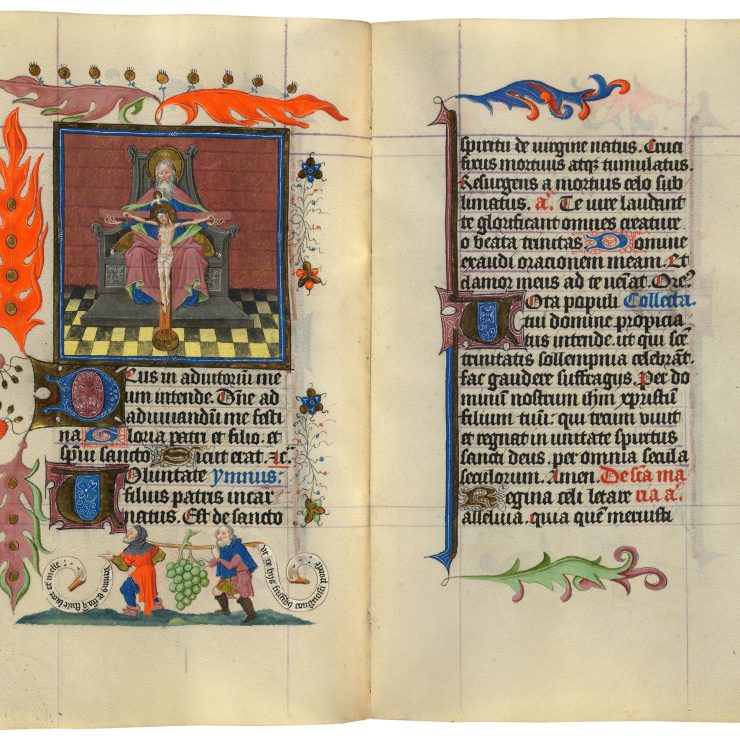 Deus in adiutoriū me
um intende. Dn̄e ad
adiuuandū me festi
na Gloria patri et filio. et
spūi sancto Sicut erat. ⁊c̄
Voluntate ymnus:
filius patris incar
natus. Est de sancto
spiritu de uirgine natus. Cruci
fixus mortuus atqꝫ tumulatus.
Resurgens a mortuis celo sub
limatus. a. Te iure laudant
te glorificant omnes creature
o beata trinitas. Domine
exaudi orationem meam. Et
clamor meus ad te ueniat. Ore
Vota populi Collecta
tui domine propicia
tus intende. ut qui scē
trinitatis sollempnia celebrāt.
fac gaudere suffragijs. Per do
minū nostrum ihm̄ xpistū
filium tuū. qui tecum viuit
et regnat in unitate spiritus
sancti deus. per omnia secula
seculorum. Amen. De scā ma
Regina celi letare ria a.
alleluia. quia quē meruisti